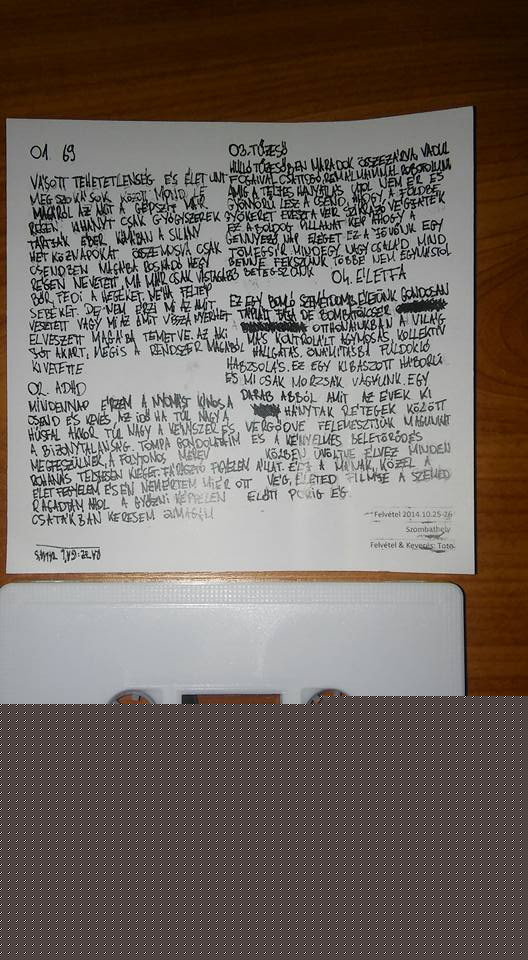 01. 69
VÁSOTT TEHETETLENSÉG ÉS ÉLETUNT
MEGSZOKÁSOK KÖZÖTT MOND LE
MAGÁRÓL AZ AKIT A GÉPSZÍJ MÁR
RÉGEN KIHÁNYT CSAK GYÓGYSZEREK
TARTJÁK ÉBER KÓMÁBAN A SILÁNY
HÉTKÖZNAPOKAT ÖSSZEMOSVA CSAK
CSENDBEN MAGÁBA ROSHADÓ HEGY
RÉGEN NEVETETT, MA MÁR CSAK VASTAGABB
BŐR FEDI A HEGEKET, NÉHA FELTÉP
SEBEKET. DE NEM ÉRZI MI AZ AMIT
VESZTETT VAGY MI AZ AMIT VISSZANYERHET
ELVESZETT MAGÁBA TEMETVE. AZ AKI
SOT AKART, MÉGIS A RENDSZER MAGÁBÓL
KIVETETTE
02. ADHD
MINDENNAP ÉRZEM A NYOMÁST KÍNOS A
CSEND ÉS KEVÉS AZ IDŐ HA TÚL NAGY A
HŰSÉG AKKOR TÚL NAGY A KÉNYSZER ÉS
A BIZONYTALANSÁG. TOMPA GONDOLATAIM
MEGFESZÜLNEK, A FOLYTONOS MEREV
ROHANÁS TELJESEN KIÉGET. FÁRASZTÓ FIGYELEM
ÉLET FEGYELEM ÉS ÉN NEM ÉRTEM MIÉRT OTT
RAGADTAM AHOL A GYŐZNI KÉPTELEN
CSATÁKBAN KERESEM ÖNMAGAM
03. TŰZESŐ
HULLÓ TŰZESŐBEN MARADOK ÖSSZEZÁRVA, VADUL
FOGAIVAL CSATTOGÓ RÉMÁLMAIMMAL ROBOTOLUNK
AMÍG A TELJES HANYATLÁS UTOL NEM ÉR ÉS
GYÖNYÖRŰ LESZ A CSEND, AHOGY A FÖLDBE
GYÖKERET ERESZT A VÉR SZÁRMAZÓ VÉGJÁTÉK
EZ A BOLDOG PILLANAT KÉP AHOGY A
GENNYEDŐ NAP ELÉGET EZ A JÖVŐNK EGY
TÖMEGSÍR MINDEGY NAGY CSALÁD, MIND
BENNE FEKSZÜNK TÖBBÉ NEM EGYMÁSTÓL
BETEGSZÜNK
04. ÉLETFA
EZ EGY BOMLÓ SZEMÉTDOMB ÉLETÜNK GONDOSAN
TÁPLÁLT FÁJA DE BOMBATÖLCSÉR
OTTHONAINKBAN A VILÁG
MÁS KONTROLLÁLT AGYMOSÁS, KOLLEKTÍV
HALLGATÁS, ÖNÁMÍTÁSBA FULDOKLÓ
HABZSOLÁS. EZ EGY KIBASZOTT HÁBORÚ
ÉS MI CSAK MORZSÁK VAGYUNK. EGY
DARAB ABBÓL AMIT AZ ÉVEK KI
HÁNYTAK RÉTEGEK KÖZÖTT
VERGŐDVE FELEMÉSZTJÜK MAGUNKAT
ÉS A KÉNYELMES BELETÖRŐDÉS
KÖZBEN ÜVÖLTVE ÉLVEZ MINDEN
ÁLLAT. ÉLJ A MÁNAK, KÖZEL A
VÉG, ÉLETED FILMJE A SZEMED
ELŐTT PORIG ÉG.
Felvétel 2014.10.25-26
Szombathely
Felvétel & Keverés: Toto